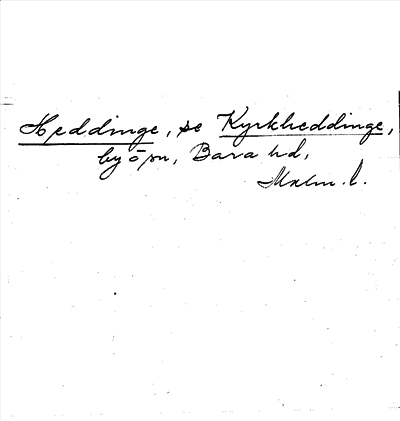 Heddinge, se Kyrkheddinge,
by o sn, Bara hd,
Malm. l.